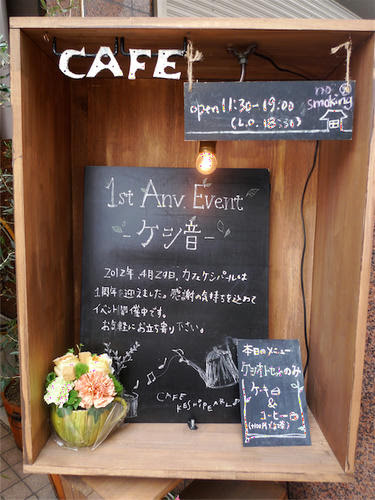 CAFE
open 11:30-19:00
(L.O. 18:30)
no
smoking
1st Anv. Event
-ケシ音-
2012年4月29日、カフェケシパールは
1周年を迎えました。感謝の気持ちを込めて
イベント開催中です。
お気軽にお立ち寄り下さい。
CAFE
KESHiPEARL
本日のメニュー
ケシオトセットのみ
ケーキ
&
コーヒー